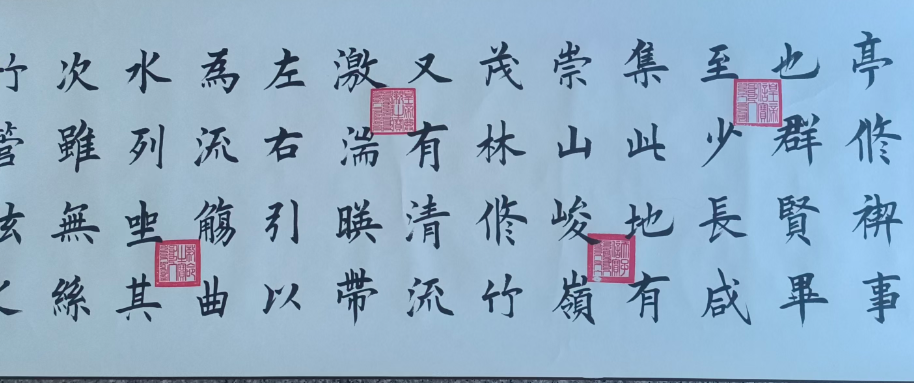 亭脩禊事
也群賢畢
至少長咸
集此地有
崇山峻嶺
茂林脩竹
又有清流
激湍暎帶
左右引以
為流觴曲
水列坐其
次雖無絲
竹管弦